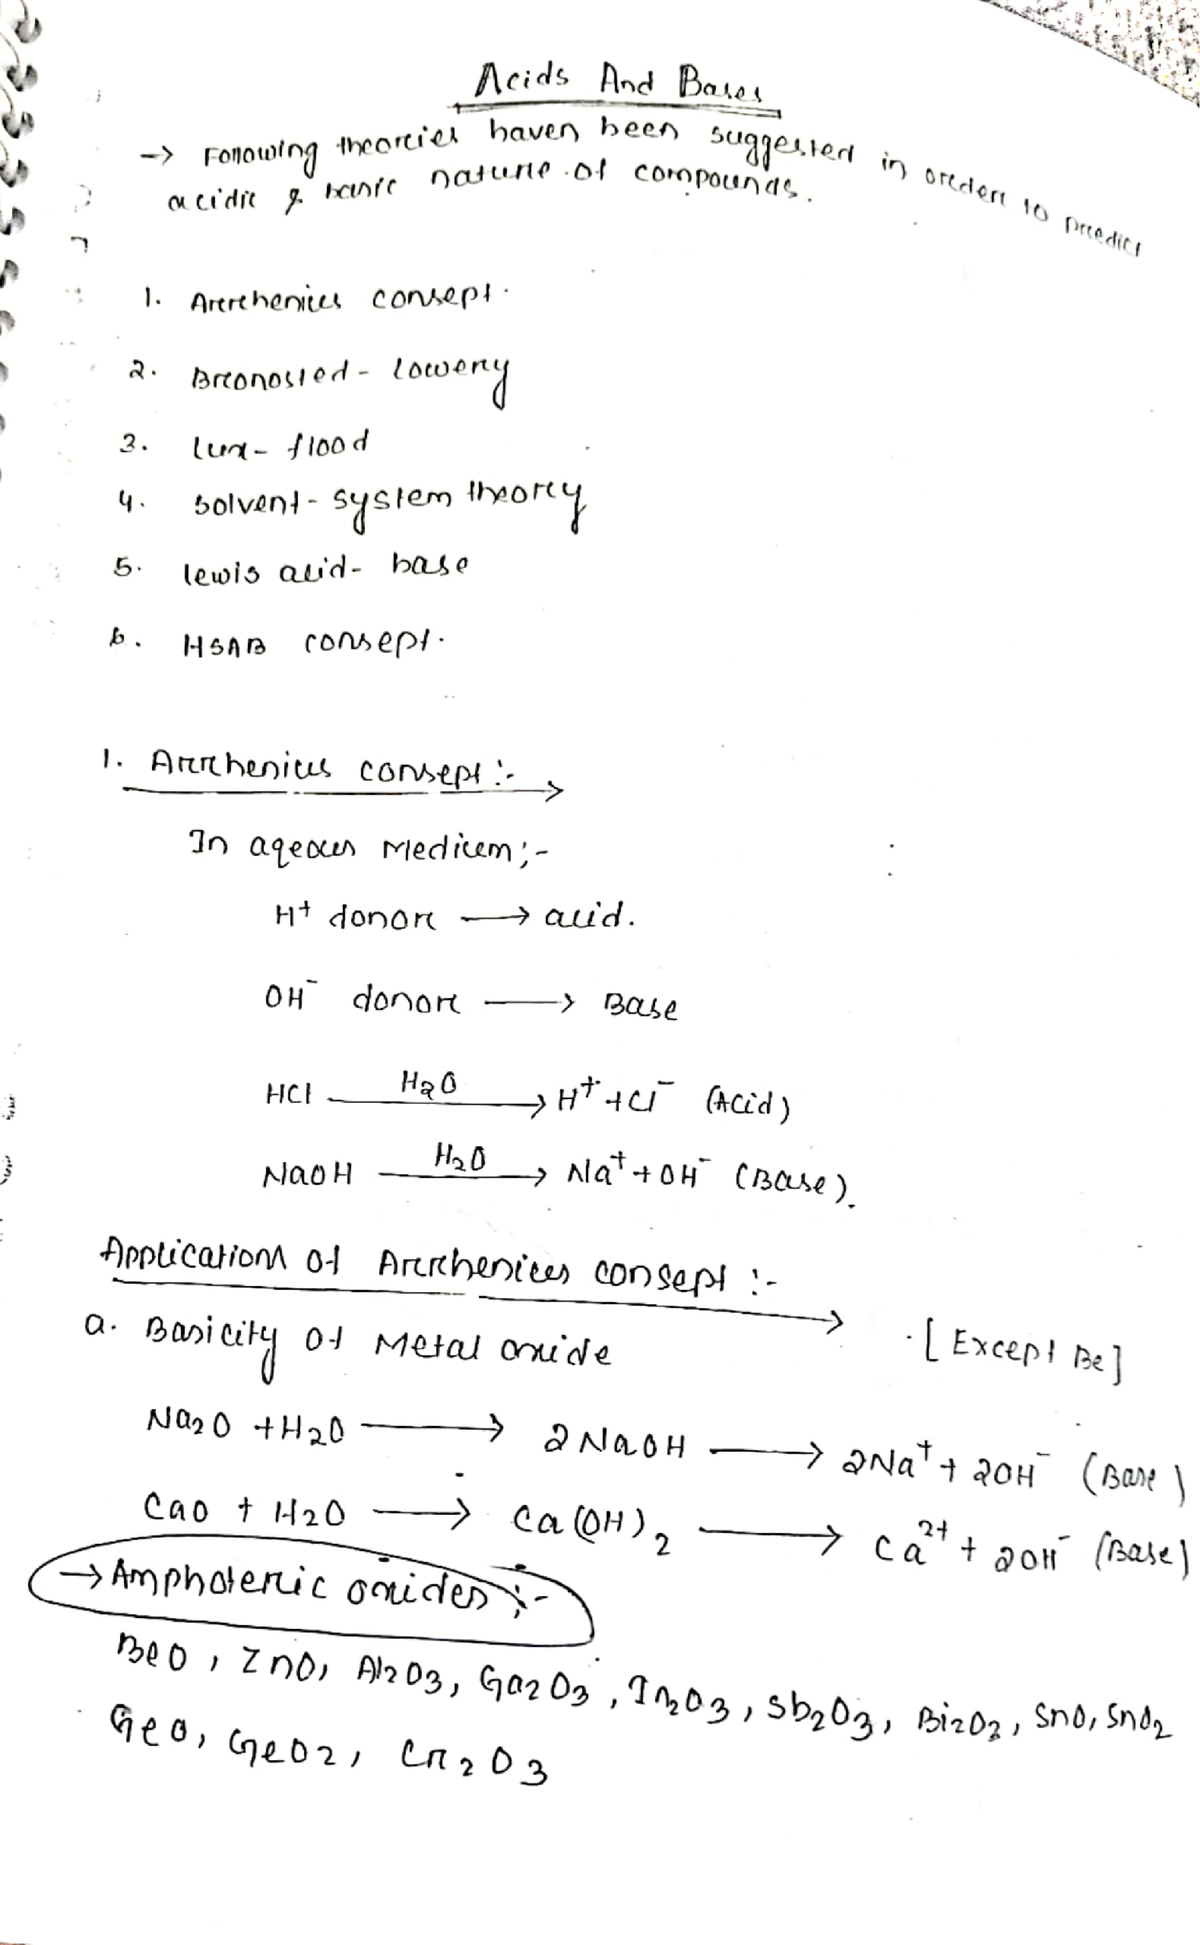 Acids And Bases
→ Following theories haven been suggested in order to predict
acidic & basic nature of compounds.
1. Arrhenius consept.
2. Bronosted - lowery
3. lux - flood
4. solvent - system theory
5. lewis acid - base
6. HSAB consept.
1. Arrhenius consept :-
In aqeous Medium ;-
H⁺ donor → acid.
OH⁻ donor → Base
HCl —H₂O→ H⁺ + Cl⁻ (Acid)
NaOH —H₂O→ Na⁺ + OH⁻ (Base).
Application of Arrhenius consept :-
a. Basicity of Metal oxide . [Except Be]
Na₂O + H₂O → 2NaOH → 2Na⁺ + 2OH⁻ (Base)
CaO + H₂O → Ca(OH)₂ → Ca²⁺ + 2OH⁻ (Base)
→ Amphoteric oxides :-
BeO, ZnO, Al₂O₃, Ga₂O₃, In₂O₃, Sb₂O₃, Bi₂O₃, SnO, SnO₂
GeO, GeO₂, Cr₂O₃